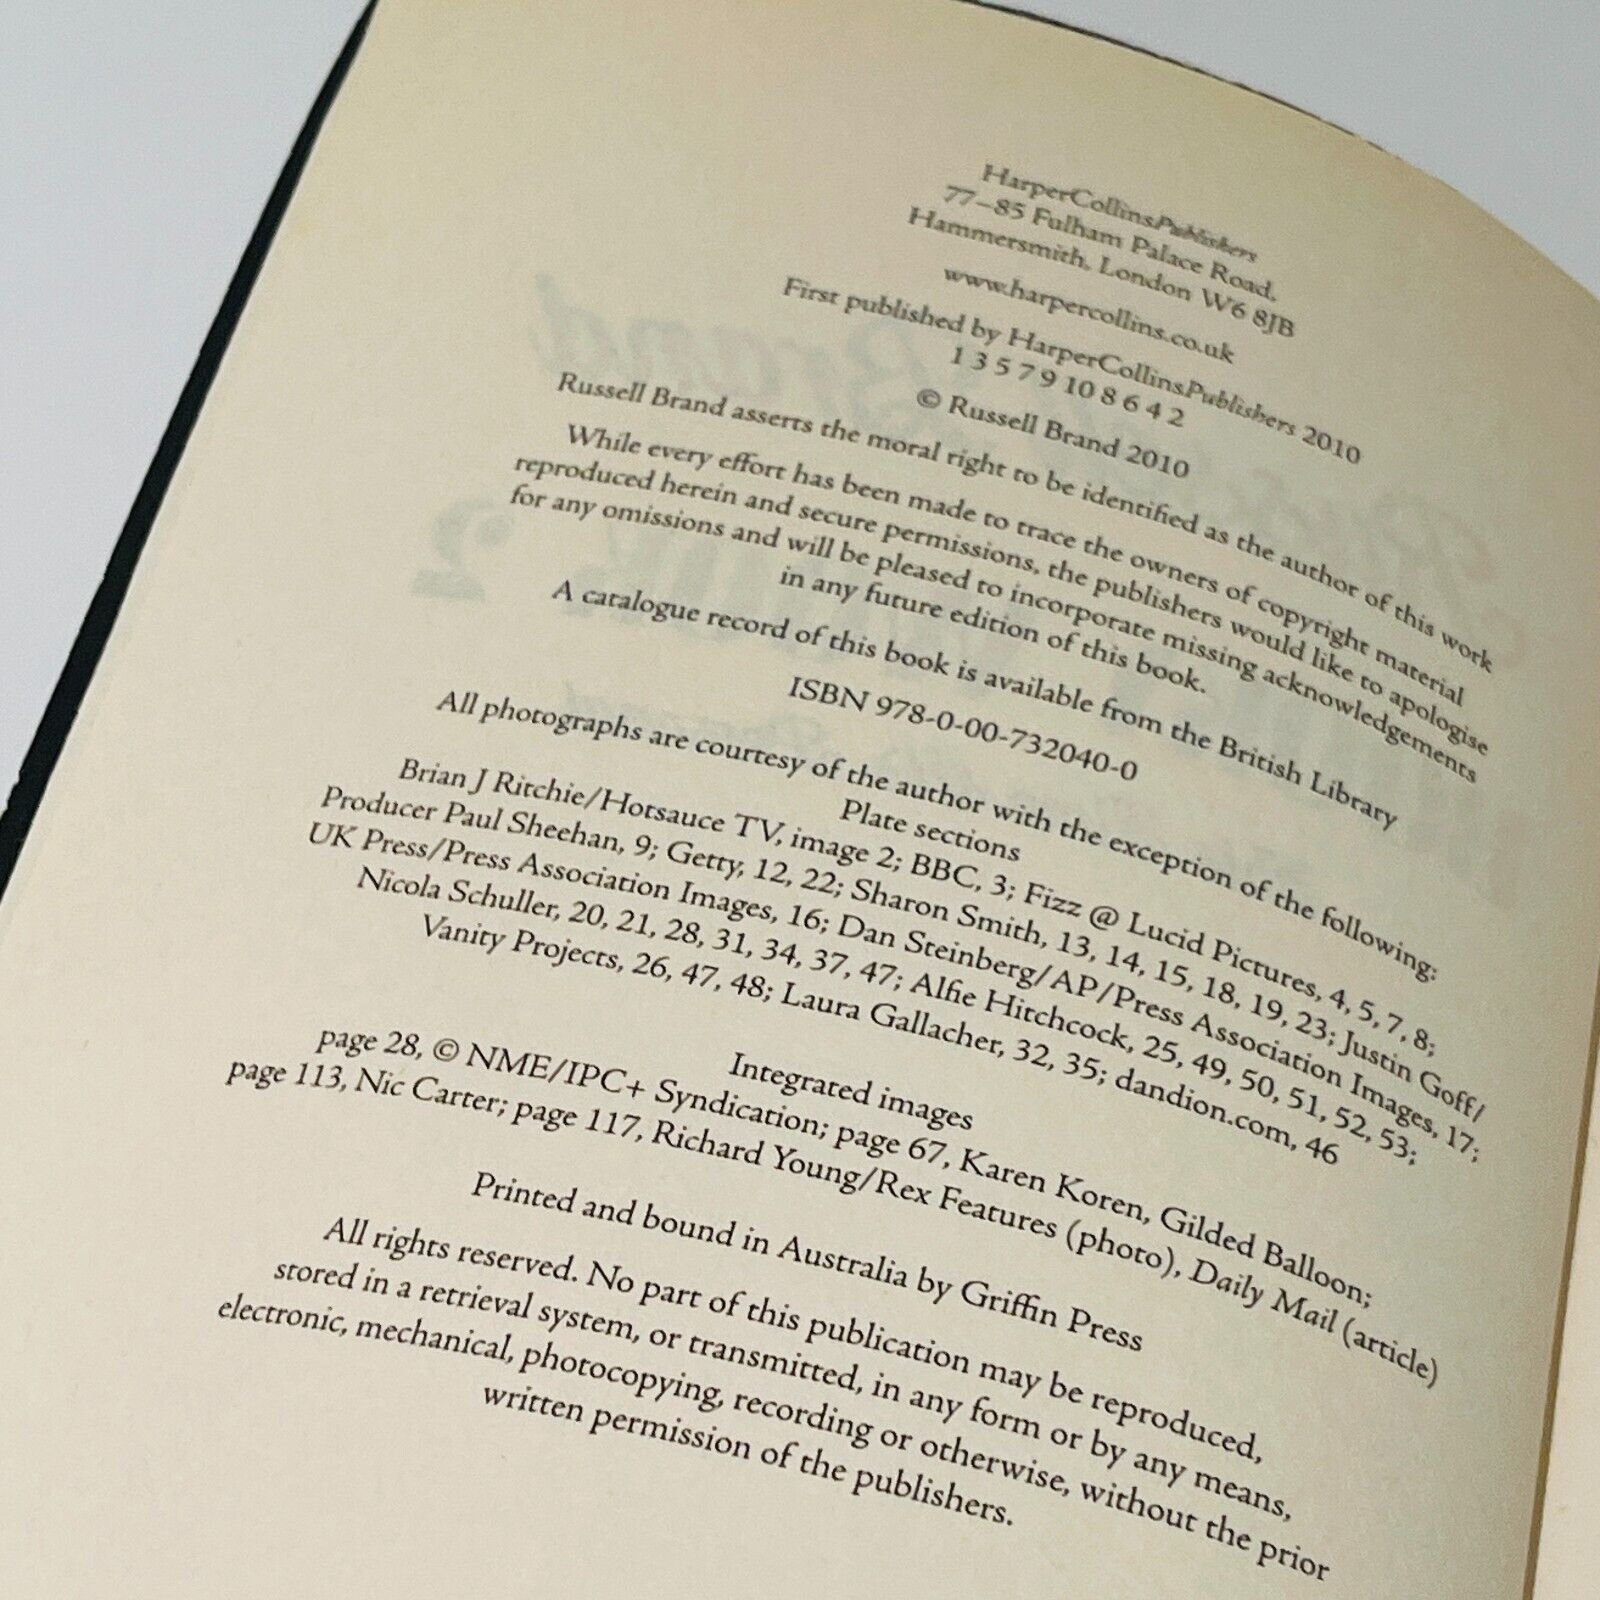 HarperCollinsPublishers
77–85 Fulham Palace Road,
Hammersmith, London W6 8JB
www.harpercollins.co.uk
First published by HarperCollinsPublishers 2010
1 3 5 7 9 10 8 6 4 2
© Russell Brand 2010
Russell Brand asserts the moral right to be identified as the author of this work
While every effort has been made to trace the owners of copyright material
reproduced herein and secure permissions, the publishers would like to apologise
for any omissions and will be pleased to incorporate missing acknowledgements
in any future edition of this book.
A catalogue record of this book is available from the British Library
ISBN 978-0-00-732040-0
All photographs are courtesy of the author with the exception of the following:
Plate sections
Brian J Ritchie/Hotsauce TV, image 2; BBC, 3; Fizz @ Lucid Pictures, 4, 5, 7, 8;
Producer Paul Sheehan, 9; Getty, 12, 22; Sharon Smith, 13, 14, 15, 18, 19, 23; Justin Goff/
UK Press/Press Association Images, 16; Dan Steinberg/AP/Press Association Images, 17;
Nicola Schuller, 20, 21, 28, 31, 34, 37, 47; Alfie Hitchcock, 25, 49, 50, 51, 52, 53;
Vanity Projects, 26, 47, 48; Laura Gallacher, 32, 35; dandion.com, 46
Integrated images
page 28, © NME/IPC+ Syndication; page 67, Karen Koren, Gilded Balloon;
page 113, Nic Carter; page 117, Richard Young/Rex Features (photo), Daily Mail (article)
Printed and bound in Australia by Griffin Press
All rights reserved. No part of this publication may be reproduced,
stored in a retrieval system, or transmitted, in any form or by any means,
electronic, mechanical, photocopying, recording or otherwise, without the prior
written permission of the publishers.